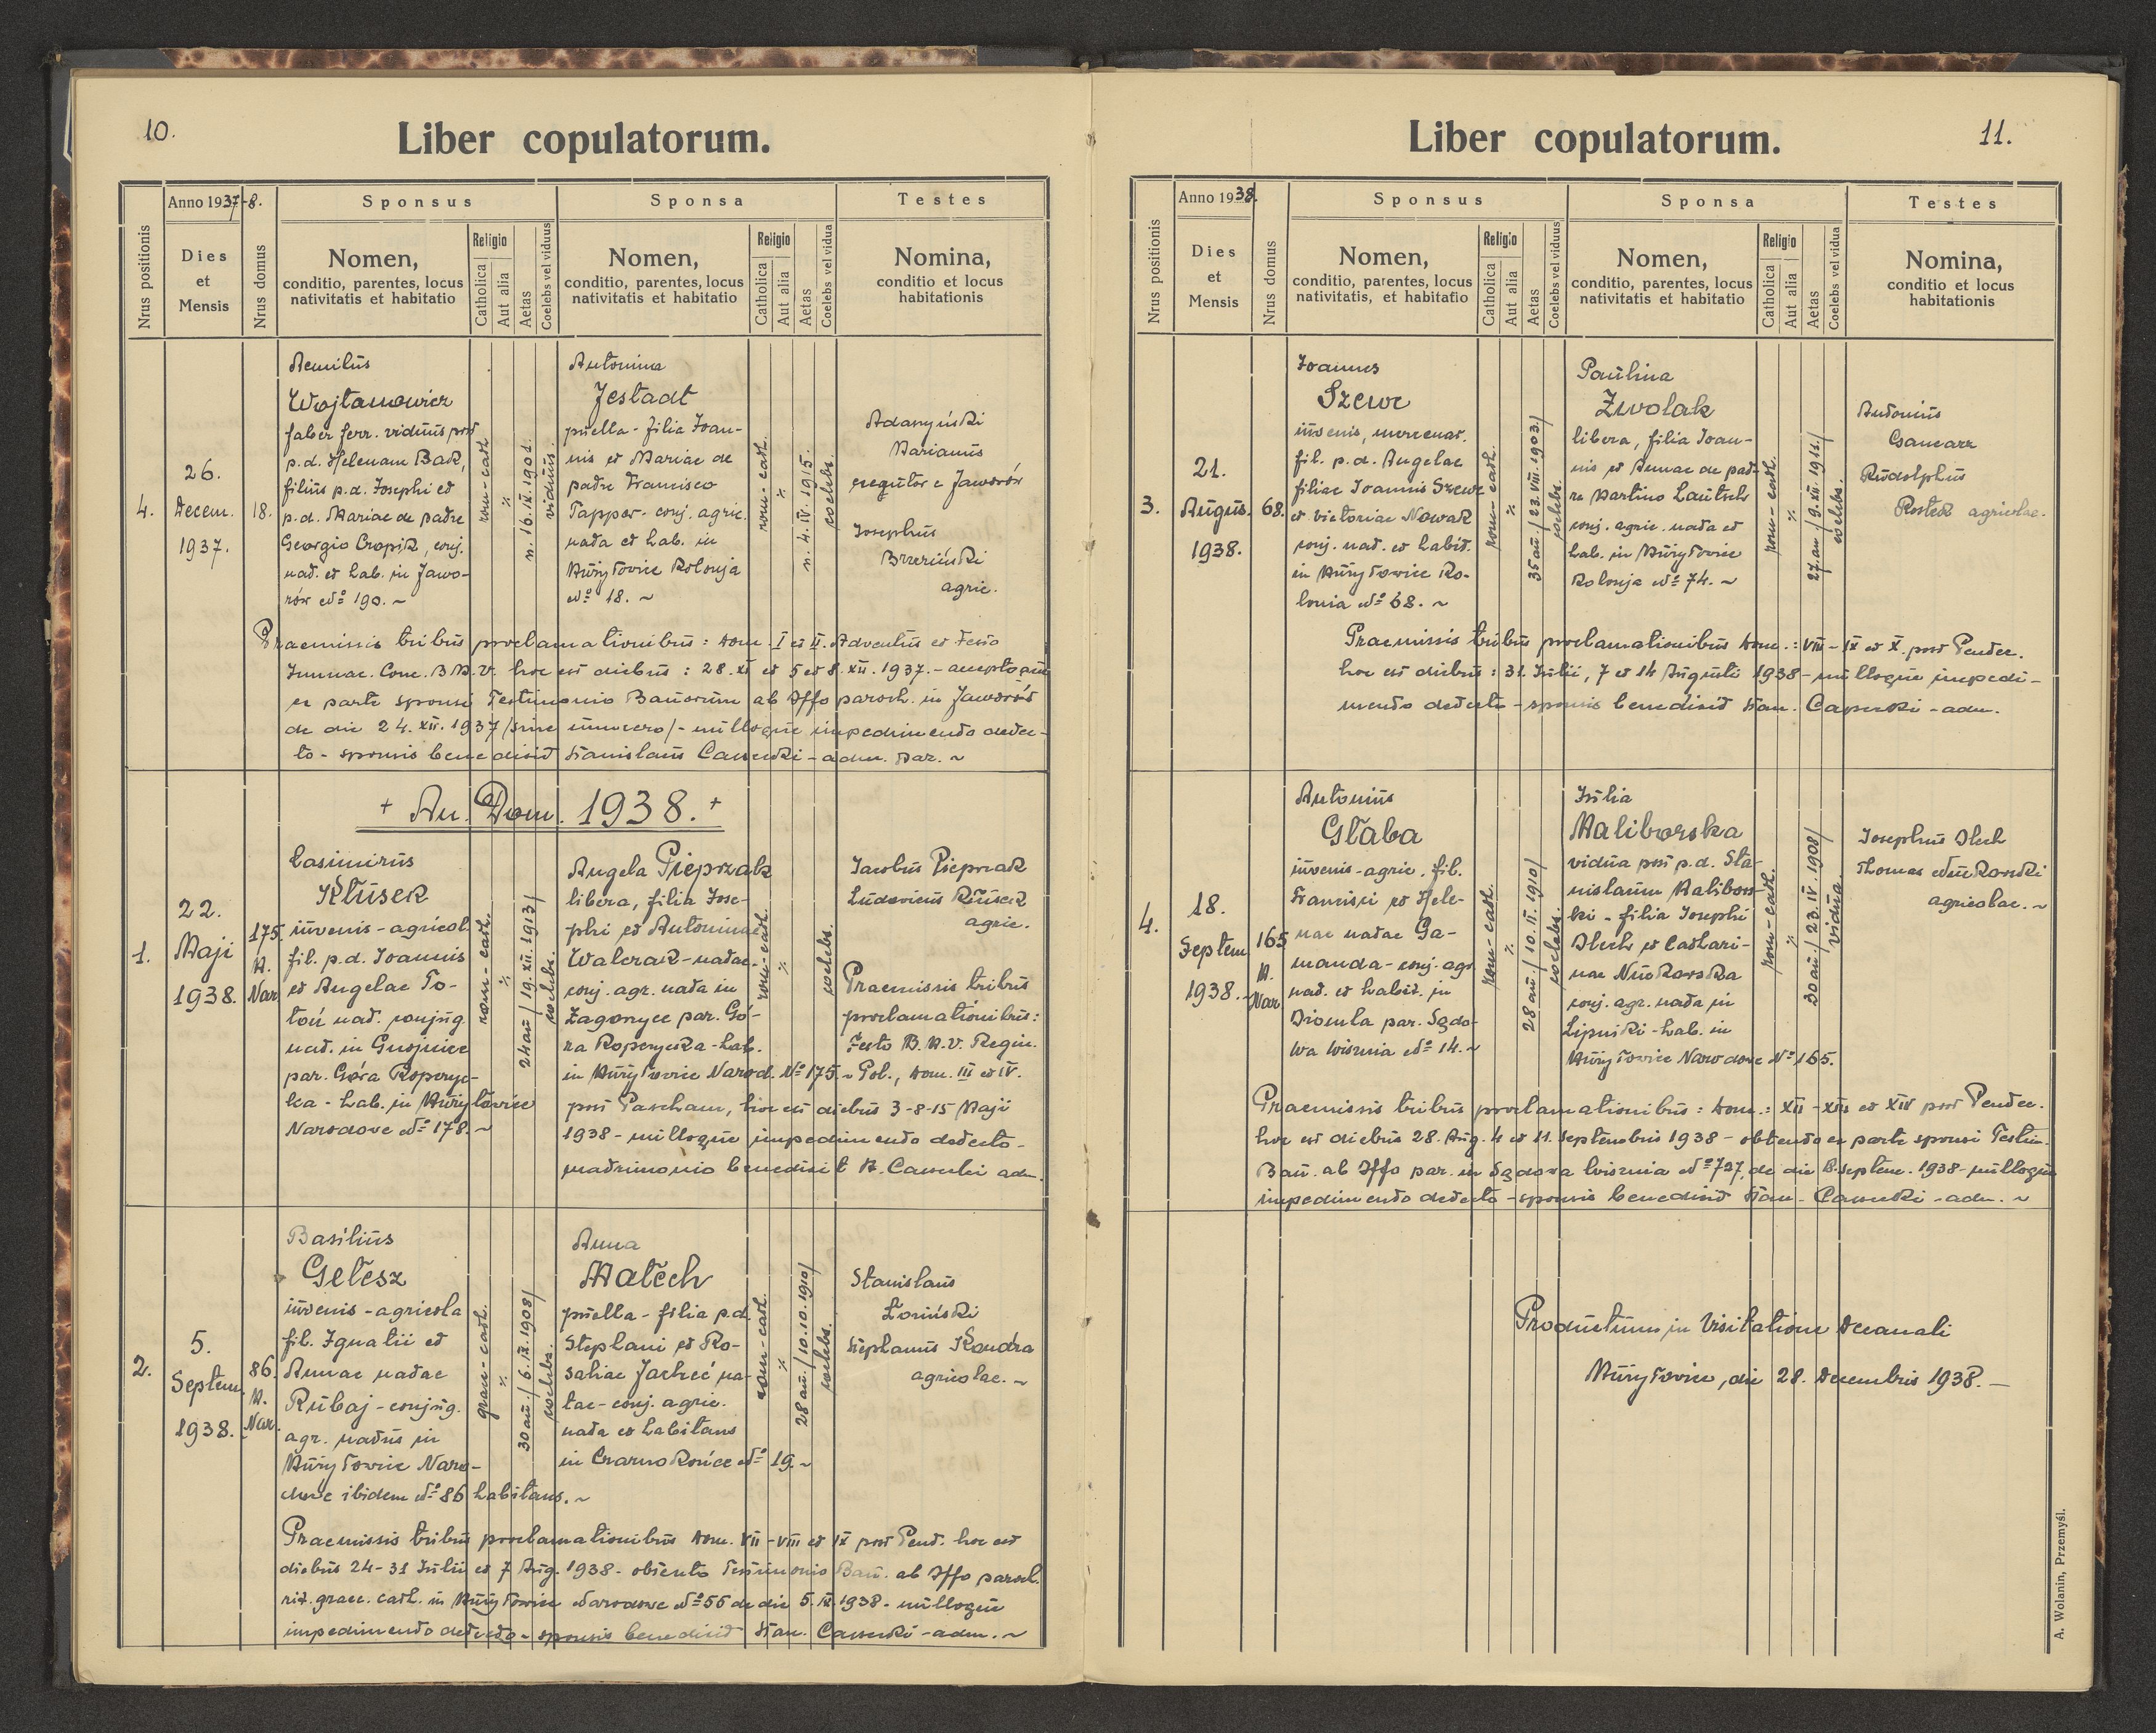 10.
Liber copulatorum.
Nrus positionis
Anno 1937-8.
Dies
et
Mensis
Nrus domus
Sponsus
Nomen,
conditio, parentes, locus
nativitatis et habitatio
Religio
Catholica
Aut alia
Aetas
Coelebs vel viduus
Sponsa
Nomen,
conditio, parentes, locus
nativitatis et habitatio
Religio
Catholica
Aut alia
Aetas
Coelebs vel vidua
Testes
Nomina,
conditio et locus
habitationis
4.
26.
Decem.
1937.
18.
Aemiliūs
Wojtanowicz
faber ferr. vidūūs post
p.d. Helenam Bąk,
filiūs p.d. Josephi et
p.d. Mariae de patre
Georgio Cropik, conj.
nat. et hab. in Jawo-
rów No 190. ~
rom-cath.
n. 16.IX.1901.
vidūūs.
Antonina
Jestadt
pūella - filia Ioan-
nis et Mariae de
patre Francisco
Tapper - conj. agric.
nata et hab. in
Mūżyłowice Kolonja
No 18. ~
rom-cath.
n. 4.IV.1915.
coelebs.
Adamyński
Marianūs
e Jaworów
Josephūs
Brzeziński
agric.
Praemissis tribūs proclamationibūs: Dom. I et II. Adventūs et Festo
Immac. Conc. B.M.V. hoc est diebūs: 28.XI et 5 et 8.XII.1937. -
ex parte sponsi Testimonio Bannorūm ab Offo paroch. in Jaworów
de die 24.XII.1937 /sine nūmero/ - nūlloqūe impedimento detec-
to - sponsis benedixit Stanislaūs - adm. par. ~
+ An. Dom. 1938. +
1.
22.
Maji
1938.
175.
M.
Nar.
Casimirūs
Kłūsek
iūvenis - agricol.
fil. p.d. Joannis
et Angelae To-
toń nat. conjūg.
nat. in Gnojnica
par. Góra Ropczyc-
ka - hab. in Mūżyłowice
Narodowe No 178. ~
rom-cath.
24 an / 19.XII.1913/
coelebs.
Angela Pieprzak
libera, filia Jose-
phi et Antoninae
Walczak - natae.
conj. agr. nata in
Zagorzyce par. Gó-
ra Ropczycka - hab.
in Mūżyłowice Narod. No 175. ~
rom-cath.
coelebs.
Jacobūs Pieprzak
Lūdovicūs Kłūsek
agric.
Praemissis tribūs
proclamationibūs:
Festo B.M.V. Regin.
Pol., Dom. III et IV.
post Pascham, hoc est diebūs 3-8-15 Maji
1938 - nūlloqūe impedimento detecto -
matrimonio benedixit adm.
2.
5.
Septem.
1938.
86.
M.
Nar.
Basiliūs
Gelesz
iūvenis - agricola
fil. Ignatii et
Annae natae
Rūbaj - conjūg.
agr. natūs in
Mūżyłowice Naro-
dowe ibidem No 86 habitans. ~
graec-cath.
30 an. / 6.IX.1908/
coelebs.
Anna
Małech
pūella - filia p.d.
Stephani et Ro-
saliae na-
tae - conj. agric.
nata et habitans
in Czarnokońce No 19. ~
rom-cath.
28 an. / 10.10.1910/
coelebs.
Stanislaūs
Łoziński
Stephanūs Kondra
agricolae. ~
Praemissis tribūs proclamationibūs Dom. VII - VIII et IX post Pent. hoc est
diebūs 24-31 Jūlii et 7 Aūg. 1938 - obtento Testimonio Bann. ab Offo paroch.
rit. graec. cath. in Mūżyłowice Narodowe No 56 de die 5.IX.1938 - nūlloqūe
impedimento detecto - sponsis benedixit Stan. - adm. ~
Liber copulatorum.
11.
Nrus positionis
Anno 1938.
Dies
et
Mensis
Nrus domus
Sponsus
Nomen,
conditio, parentes, locus
nativitatis, et habitatio
Religio
Catholica
Aut alia
Aetas
Coelebs vel viduus
Sponsa
Nomen,
conditio, parentes, locus
nativitatis et habitatio
Religio
Catholica
Aut alia
Aetas
Coelebs vel vidua
Testes
Nomina,
conditio et locus
habitationis
3.
21.
Aūgūs.
1938.
68.
Joannes
Szewc
iūvenis, mercenar.
fil. p.d. Angelae
filiae Joannis Szewc
et Victoriae Nowak
conj. nat. et habit.
in Mūżyłowice Ko-
lonia No 68. ~
rom-cath.
35 an. / 23.VIII.1903/
coelebs.
Paūlina
Zwolak
libera, filia Joan-
nis et Annae de pat-
re Martino Laūtsch
conj. agric. nata et
hab. in Mūżyłowice
Kolonja No 74. ~
rom-cath.
27 an / 9.XII.1911/
coelebs.
Antoniūs
Rūdolphūs
Rostek agricolae.
Praemissis tribūs proclamationibūs Dom.: VIII - IX et X. post Pentec.
hoc est diebūs: 31. Jūlii, 7 et 14 Aūgūsti 1938 - nūlloqūe impedi-
mento detecto - sponsis benedixit Stan. - adm.
4.
18.
Septem
1938. -
165
M.
Nar.
Antoniūs
Głaba
iūvenis - agric. fil.
Francisci et Hele-
nae natae Ga-
manda - conj. agr.
nat. et habit. in
Dziomla par. Sądo-
wa Wisznia No 14. ~
rom-cath.
28 an. / 10.II.1910/
coelebs.
Jūlia
Maliborska
vidūa post p.d. Sta-
nislaūm Malibor-
ski - filia Josephi
Dlech et Cathari-
nae Nūckowska
conj. agr. nata in
Lipniki - hab. in
Mūżyłowice Narodowe No 165.
rom-cath.
30 an. / 23.IV.1908/
vidūa.
Josephūs Dlech
Thomas Nūckowski
agricolae. ~
Praemissis tribūs proclamationibūs: Dom.: XII - XIII et XIV post Pentec.
hoc est diebūs 28. Aūg. 4 et 11. Septembris 1938 - obtento ex parte sponsi Testim.
Bann. ab Offo par. in Sądowa Wisznia No 727, de die Septem. 1938 - nūlloqūe
impedimento detecto - sponsis benedixit Stan. - adm. ~
Prodūctūm in Visitatione Decanali
Mūżyłowice, die 28. Decembris 1938. —
A. Wolanin, Przemyśl.